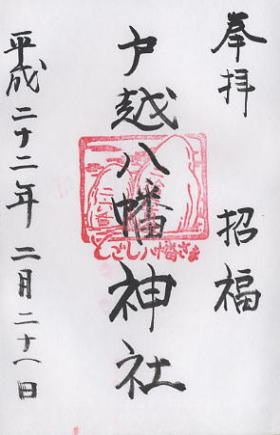 奉拝 招福
戸越八幡神社
とごし八幡さま
平成二十二年 二月二十八日